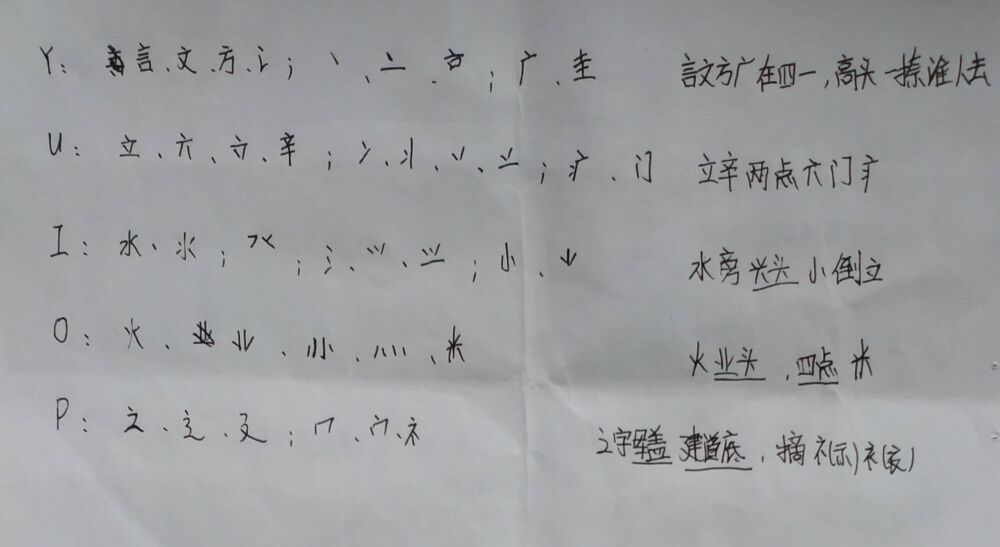 Y: 言、文、方、讠; 丶、亠、; 广、圭 言文方广在四一,高头一捺谁人去
U: 立、六、立、辛; 冫、丬、丷、; 疒、门 立辛两点六门疒
I: 水、氺; ; 氵、⺍、; 小、 水旁兴头小倒立
O: 火、业、、灬、米 火业头,四点米
P: 之、辶、廴; 冖、宀、礻 之字军盖建道底,摘礻(示)衤(衣)